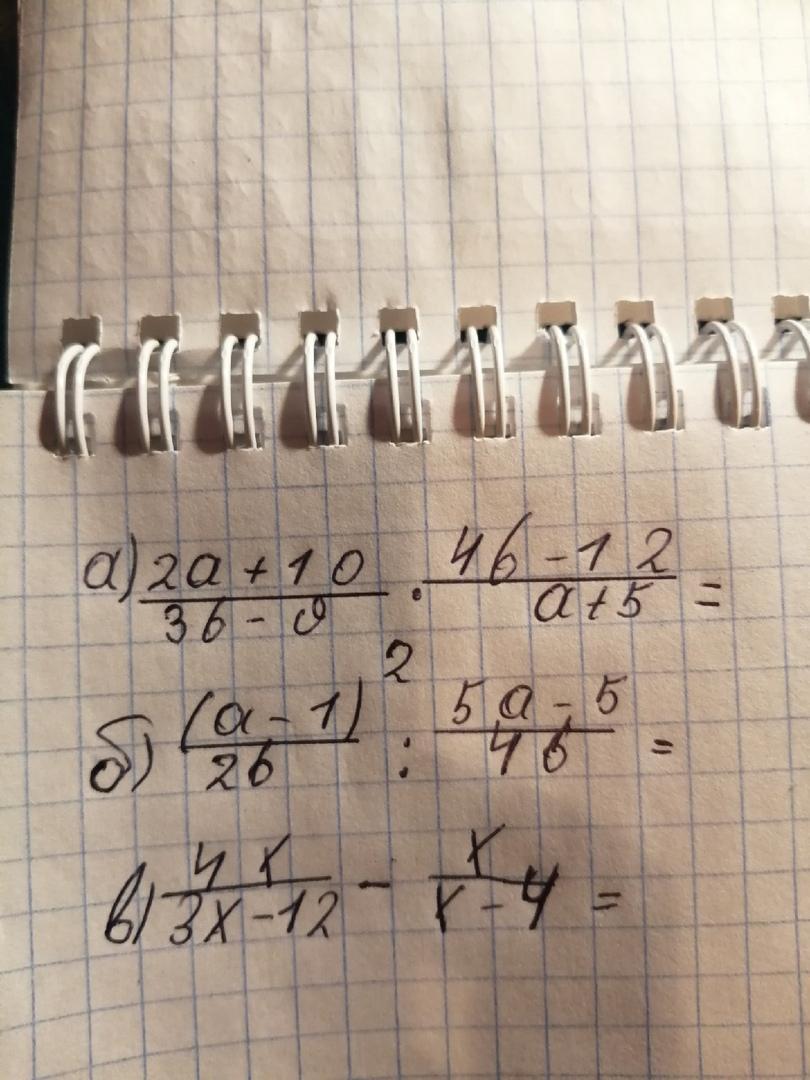 а) 2a + 10 / 3b - 9 · 4b - 12 / a + 5 =
б) (a - 1)² / 2b : 5a - 5 / 4b =
в) 4x / 3x - 12 - x / x - 4 =